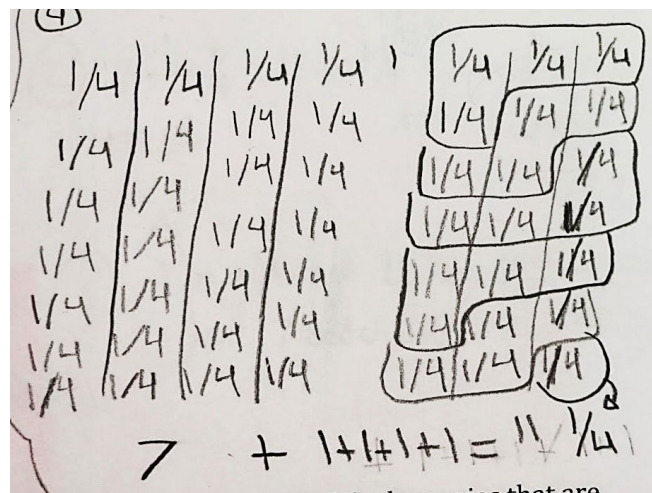 4
1/4 1/4 1/4 1/4 1/4 1/4 1/4
1/4 1/4 1/4 1/4 1/4 1/4 1/4
1/4 1/4 1/4 1/4 1/4 1/4 1/4
1/4 1/4 1/4 1/4 1/4 1/4 1/4
1/4 1/4 1/4 1/4 1/4 1/4 1/4
1/4 1/4 1/4 1/4 1/4 1/4 1/4
1/4 1/4 1/4 1/4 1/4 1/4 1/4
7 + 1+1+1+1 = 11 1/4
that are